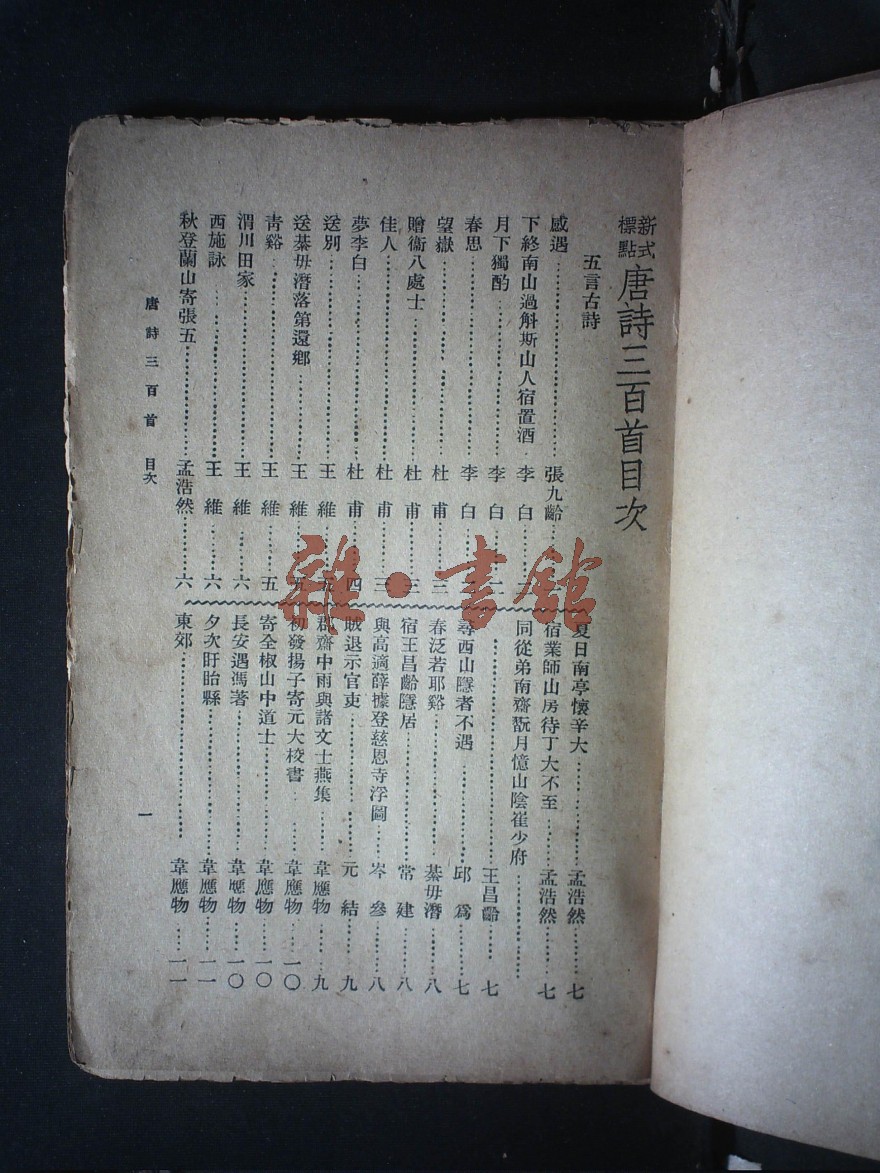 新式標點 唐詩三百首目次
五言古詩
感遇 張九齡
下終南山過斛斯山人宿置酒 李白
月下獨酌 李白
春思 李白
望嶽 杜甫 三
贈衞八處士 杜甫
佳人 杜甫
夢李白 杜甫 四
送別 王維
送綦毋潛落第還鄉 王維
青谿 王維 五
渭川田家 王維 六
西施詠 王維 六
秋登蘭山寄張五 孟浩然 六
夏日南亭懷辛大 孟浩然 七
宿業師山房待丁大不至 孟浩然 七
同從弟南齋翫月憶山陰崔少府
王昌齡 七
尋西山隱者不遇 邱為 七
春泛若耶谿 綦毋潛 八
宿王昌齡隱居 常建 八
與高適薛據登慈恩寺浮圖 岑參 八
賊退示官吏 元結 九
郡齋中雨與諸文士燕集 韋應物 九
初發揚子寄元大校書 韋應物 一〇
寄全椒山中道士 韋應物 一〇
長安遇馮著 韋應物 一〇
夕次盱眙縣 韋應物 一一
東郊 韋應物 一一
唐詩三百首 目次
一
雜·書館